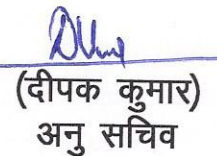 (दीपक कुमार)
अनु सचिव